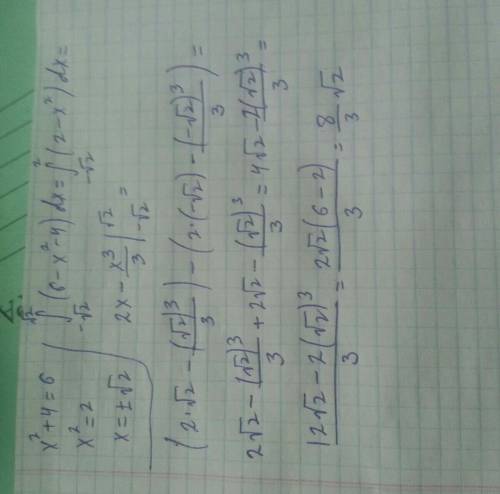 x² + 4 = 6
x² = 2
x = ±√2
∫_{-√2}^{√2} (6 - x² - 4) dx = ∫_{-√2}^{2} (2 - x²) dx =
2x - x³/3 |_{-√2}^{√2} =
(2·√2 - (√2)³/3) - (2·(-√2) - (-√2)³/3) =
2√2 - (√2)³/3 + 2√2 - (√2)³/3 = 4√2 - 2(√2)³/3 =
(12√2 - 2(√2)³)/3 = 2√2(6 - 2)/3 = 8/3 √2